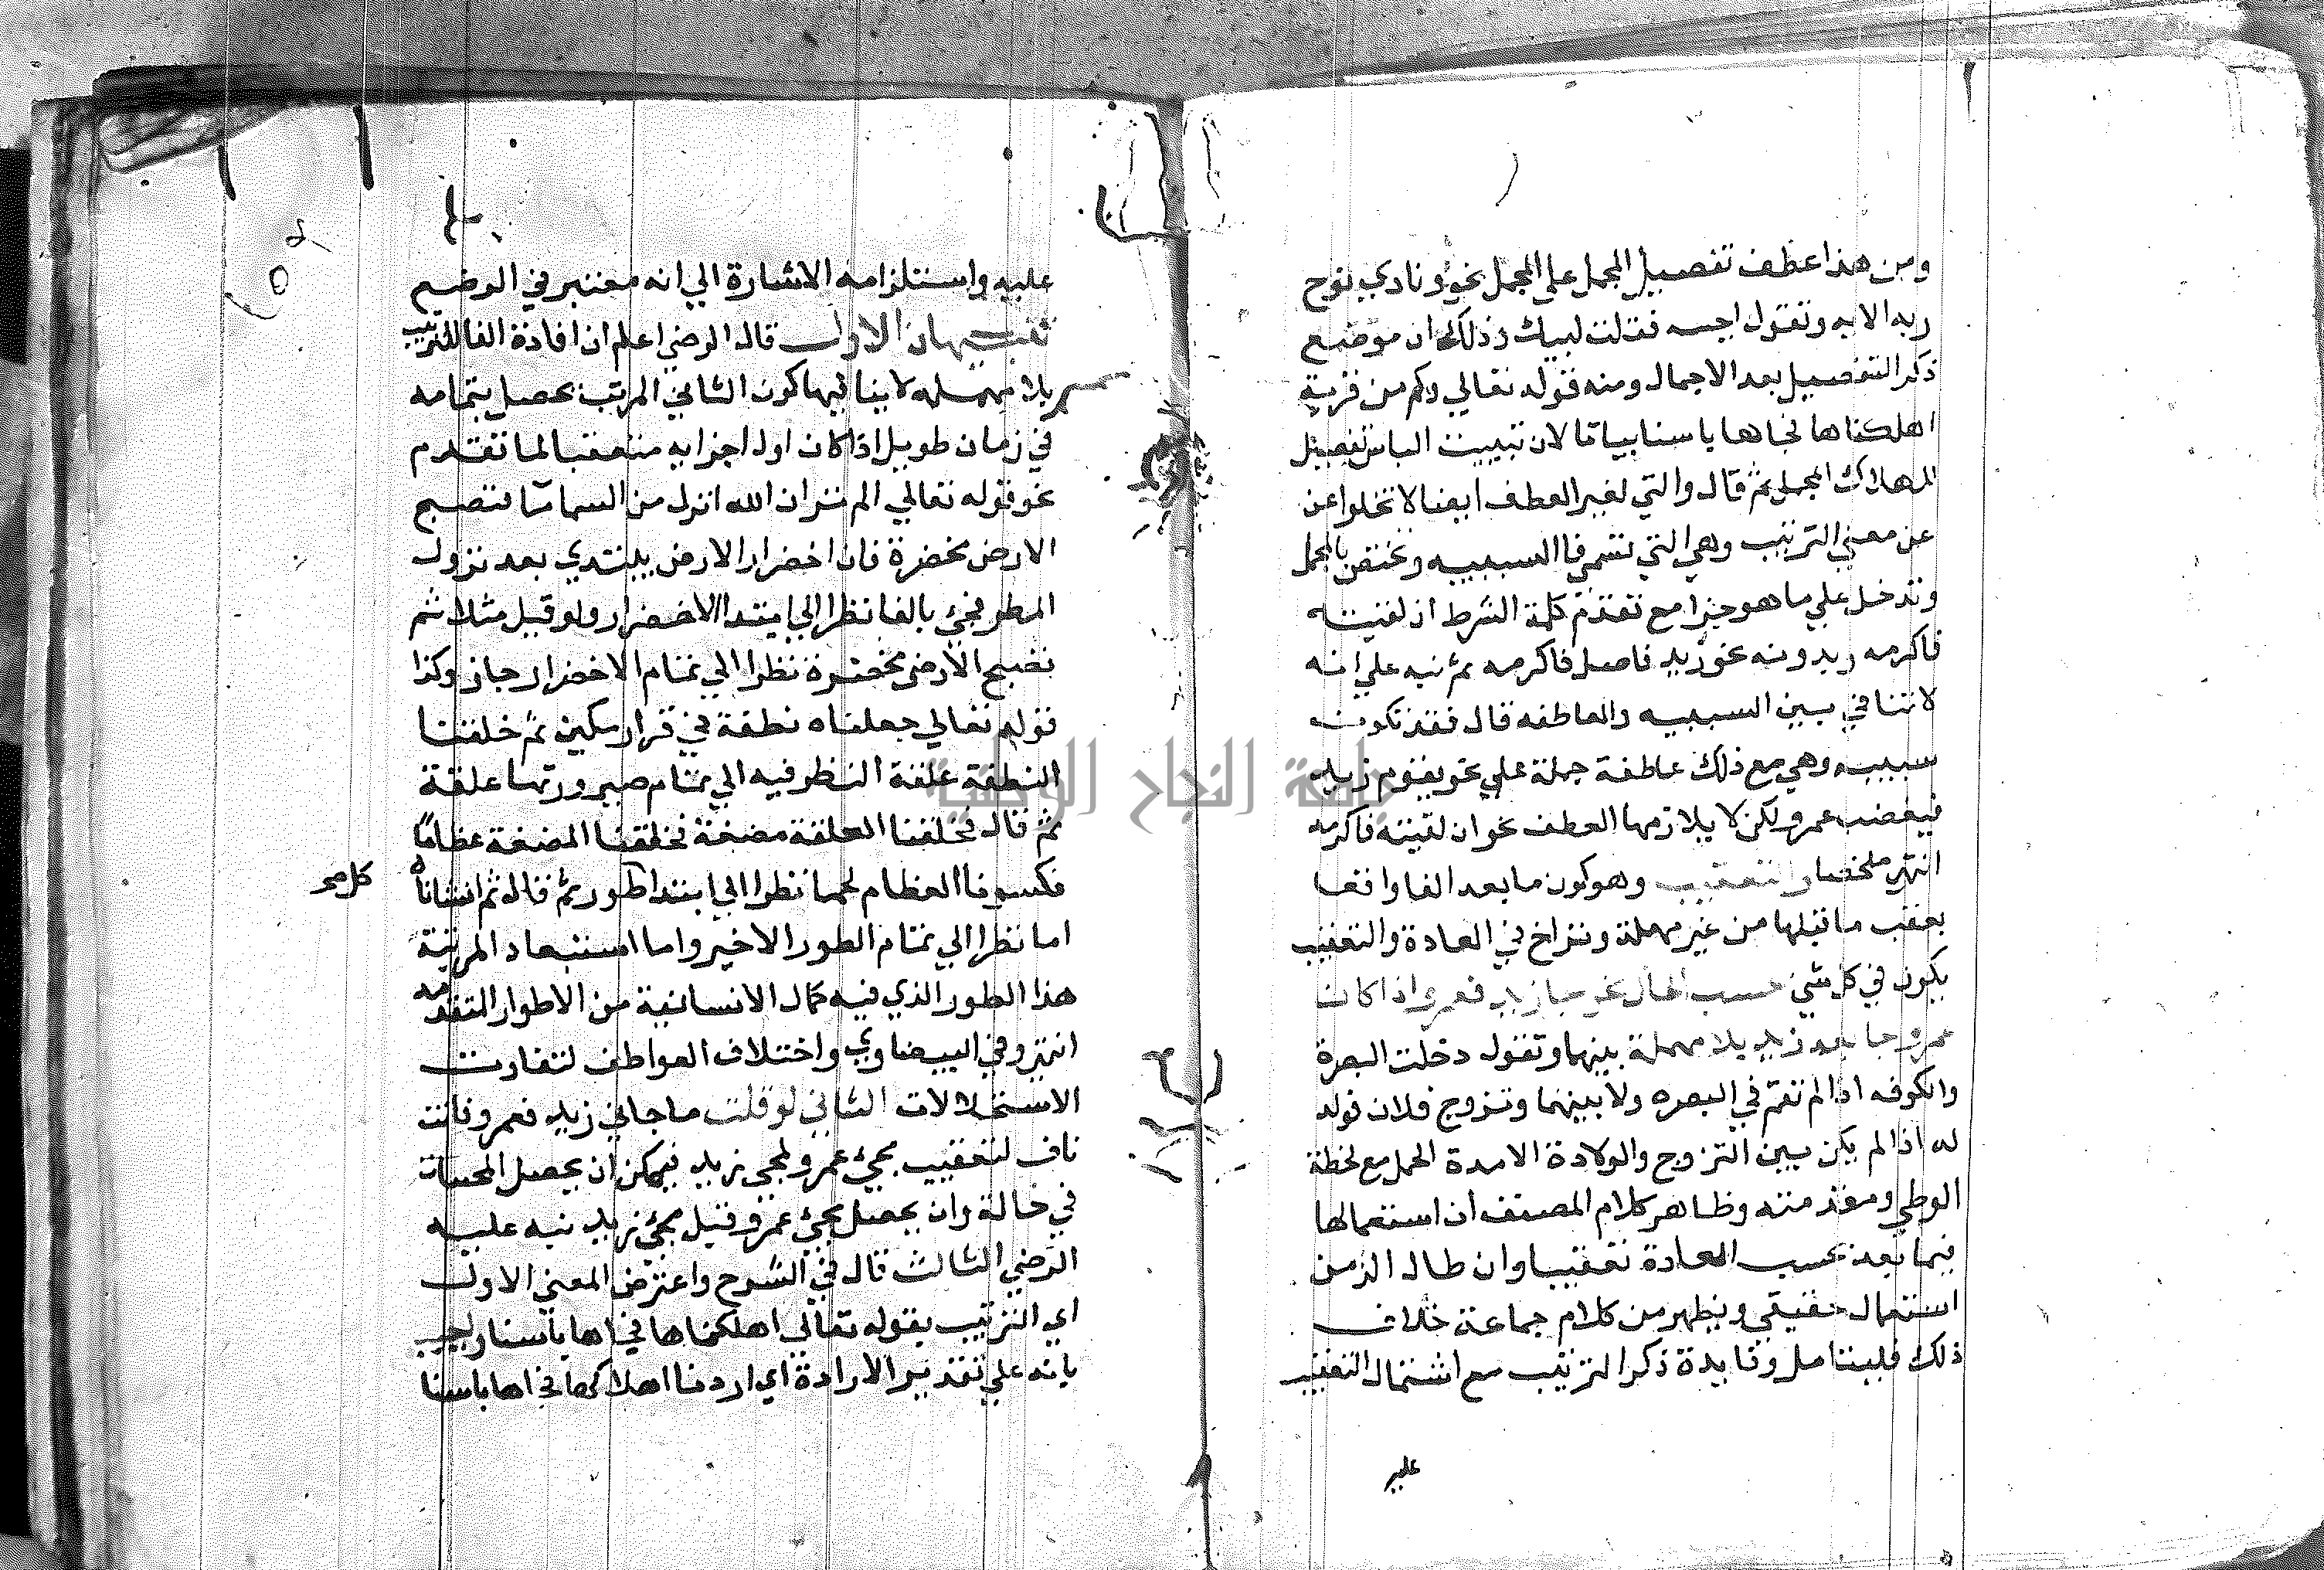 ومن هذا عطف تفصيل المجمل على المجمل نحو ونادي نوح
ربه الايه وتقول اجبته فقلت لبيك وذلك لان موضع
ذكر التفصيل بعد الاجمال ومنه قوله تعالي وكم من قرية
اهلكناها فجاءها باسنا بياتا لان تبييت الباس تفصيل
للهلاك المجمل ثم قال والتي لغير العطف ايضا لا تخلوا عن
عن معني الترتيب وهي التي تسمي فا السببيه وتختص بالجمل
وتدخل علي ما هو جزا مع تقدم كلمة الشرط ان لقيته
فاكرمه وبدونه نحو زيد فاضل فاكرمه ثم نبه علي انه
لا تنافي بين السببيه والعاطفه قال فقد تكون
سببيه وهي مع ذلك عاطفة جملة علي نحو يقوم زيد
فيغضب عمرو لكن لا يلازمها العطف نحو ان لقيته فاكرمه
انتهي ملخصا والتعقيب وهو كون ما بعد الفا واقعا
بعقب ما قبلها من غير مهلة وتراخ في العادة والتعقيب
يكون في كل شي حسب الحال نحو جا زيد فعمرو اذا كان
عمرو جا بعد زيد بلا مهملة بينهما وتقول دخلت البصرة
والكوفه اذا لم تقم في البصره ولا بينهما وتزوج فلان فولد
له اذا لم يكن بين التزوج والولادة الا مدة الحمل مع لحظة
الوطي ومقدمته وظاهر كلام المصنف ان استعمالها
فيما يعد بحسب العادة تعقيبا وان طال الزمن
استعمال حقيقي ويظهر من كلام جماعة خلاف
ذلك فليتامل وفايدة ذكر الترتيب مع اشتمال التعقيب
عليه
عليه واستلزامه الاشارة الي انه معتبر في الوضع
تنبيهان الاول قال الرضي اعلم ان افادة الفا للترتيب
بلا مهمله لا ينافيها كون الثاني المرتب يحصل بتمامه
في زمان طويل اذا كان اول اجزايه متعقبا لما تقدم
نحو قوله تعالي الم تر ان الله انزل من السما ما فتصبح
الارض مخضرة فان اخضرار الارض يبتدي بعد نزول
المطر فجئ بالفا نظرا الي ابتدا الاخضرار ولو قيل مثلا ثم
تصبح الارض مخضرة نظرا الي تمام الاخضرار جاز وكذا
قوله تعالي جعلناه نطفة في قرار مكين ثم خلقنا
النطفة علقة النظر فيه الي تمام صيرورتها علقة
ثم قال فخلقنا العلقة مضغة فخلقنا المضغة عظاما
فكسونا العظام لحما نظرا الي ابتدا طور ثم قال ثم انشاناه
اما نظرا الي تمام الطور الاخير واما استبعاد المرتبة
هذا الطور الذي فيه كمال الانسانية من الاطوار المتقدمه
انتهي وفي البيضاوي واختلاف العواطف لتفاوت
الاستحالات الثاني لو قلت ما جاني زيد فعمرو فانت
ناف لتعقيب مجئ عمرو لمجي زيد فيمكن ان يحصل المجيان
في حالة وان يحصل مجئ عمرو قبل مجئ زيد نبه عليه
الرضي الثالث قال في الشرح واعترض المعني الاول
اي الترتيب بقوله تعالي اهلكناها فجاها باسنا واجيب
بانه علي تقدير الارادة اي اردنا اهلاكها فجاها باسنا
جامعة النجاح الوطنية